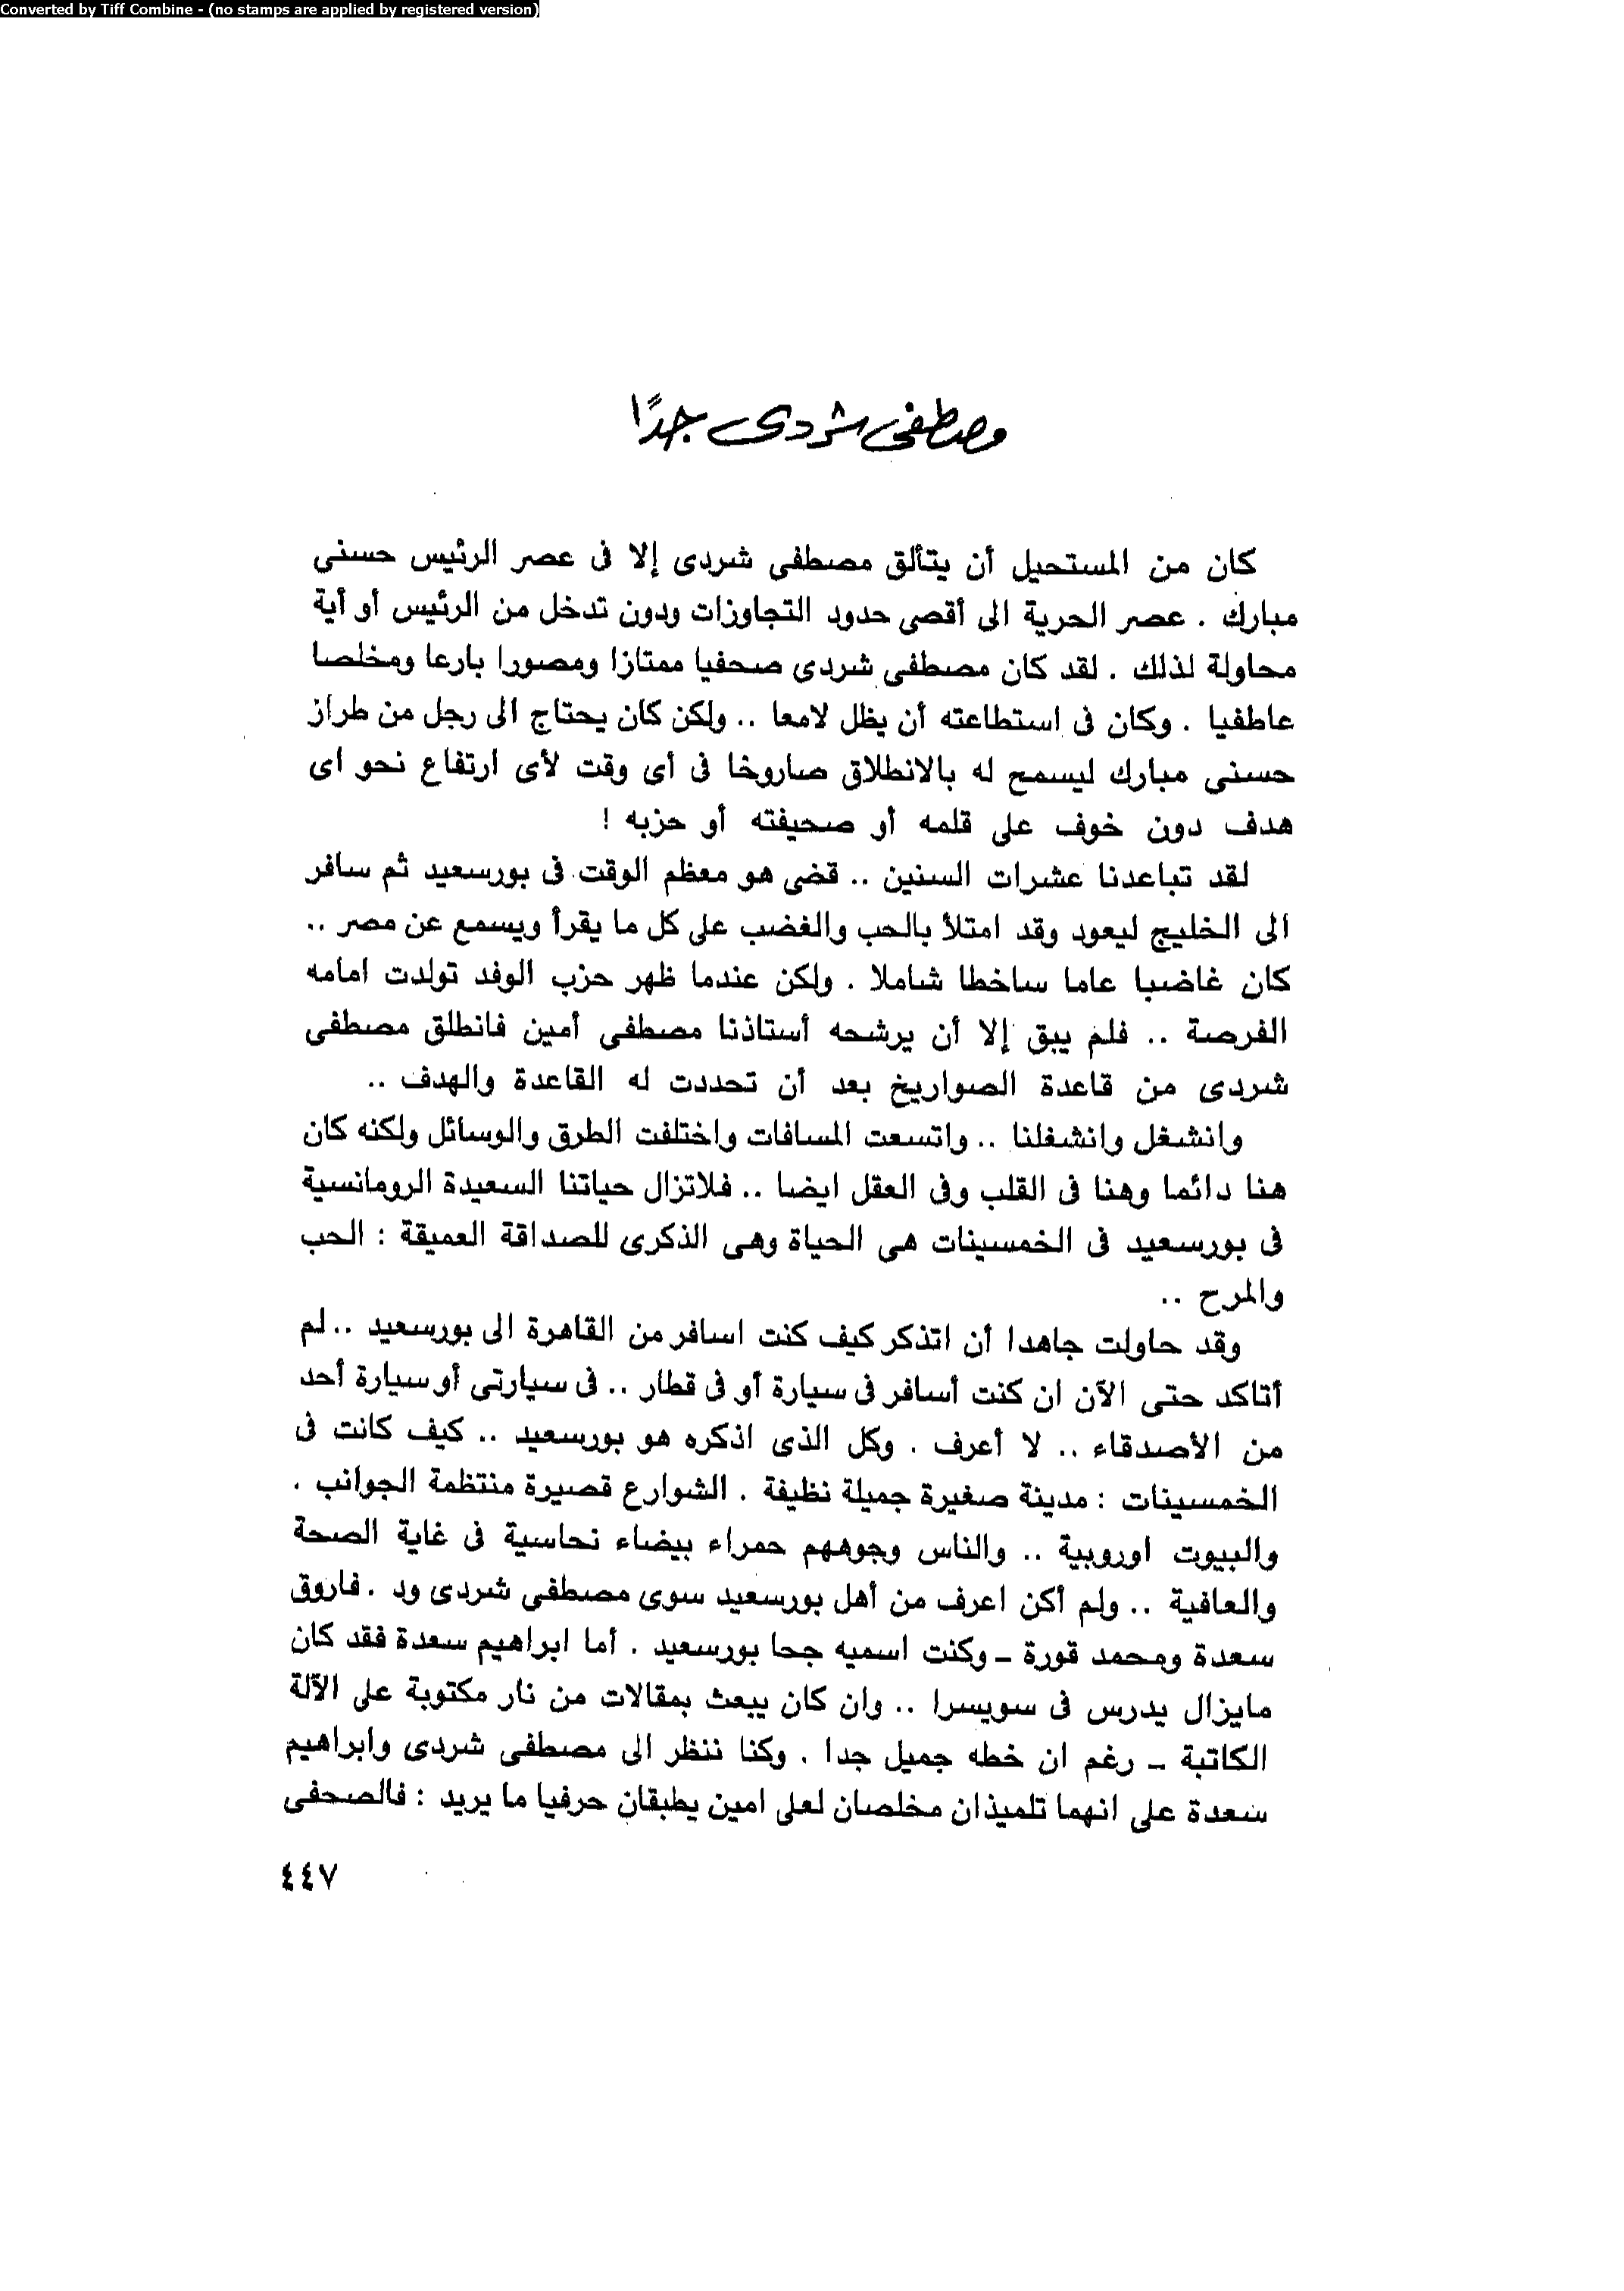 Converted by Tiff Combine - (no stamps are applied by registered version)
مصطفى شردى جدًا
كان من المستحيل أن يتألق مصطفى شردى إلا فى عصر الرئيس حسنى
مبارك . عصر الحرية الى أقصى حدود التجاوزات ودون تدخل من الرئيس أو أية
محاولة لذلك . لقد كان مصطفى شردى صحفيا ممتازا ومصورا بارعا ومخلصا
عاطفيا . وكان فى استطاعته أن يظل لامعا .. ولكن كان يحتاج الى رجل من طراز
حسنى مبارك ليسمح له بالانطلاق صاروخا فى أى وقت لأى ارتفاع نحو اى
هدف دون خوف على قلمه أو صحيفته أو حزبه !
لقد تباعدنا عشرات السنين .. قضى هو معظم الوقت فى بورسعيد ثم سافر
الى الخليج ليعود وقد امتلأ بالحب والغضب على كل ما يقرأ ويسمع عن مصر ..
كان غاضبا عاما ساخطا شاملا . ولكن عندما ظهر حزب الوفد تولدت امامه
الفرصة .. فلم يبق إلا أن يرشحه أستاذنا مصطفى أمين فانطلق مصطفى
شردى من قاعدة الصواريخ بعد أن تحددت له القاعدة والهدف ..
وانشغل وانشغلنا .. واتسعت المسافات واختلفت الطرق والوسائل ولكنه كان
هنا دائما وهنا فى القلب وفى العقل ايضا .. فلاتزال حياتنا السعيدة الرومانسية
فى بورسعيد فى الخمسينات هى الحياة وهى الذكرى للصداقة العميقة : الحب
والمرح ..
وقد حاولت جاهدا أن اتذكر كيف كنت اسافر من القاهرة الى بورسعيد .. لم
أتاكد حتى الآن ان كنت أسافر فى سيارة أو فى قطار .. فى سيارتى أو سيارة أحد
من الأصدقاء .. لا أعرف . وكل الذى اذكره هو بورسعيد .. كيف كانت فى
الخمسينات : مدينة صغيرة جميلة نظيفة . الشوارع قصيرة منتظمة الجوانب .
والبيوت اوروبية .. والناس وجوههم حمراء بيضاء نحاسية فى غاية الصحة
والعافية .. ولم أكن اعرف من أهل بورسعيد سوى مصطفى شردى ود . فاروق
سعدة ومحمد قورة - وكنت اسميه جحا بورسعيد . أما ابراهيم سعدة فقد كان
مايزال يدرس فى سويسرا .. وان كان يبعث بمقالات من نار مكتوبة على الآلة
الكاتبة - رغم ان خطه جميل جدا . وكنا ننظر الى مصطفى شردى وابراهيم
سعدة على انهما تلميذان مخلصان لعلى امين يطبقان حرفيا ما يريد : فالصحفى
٤٤٧